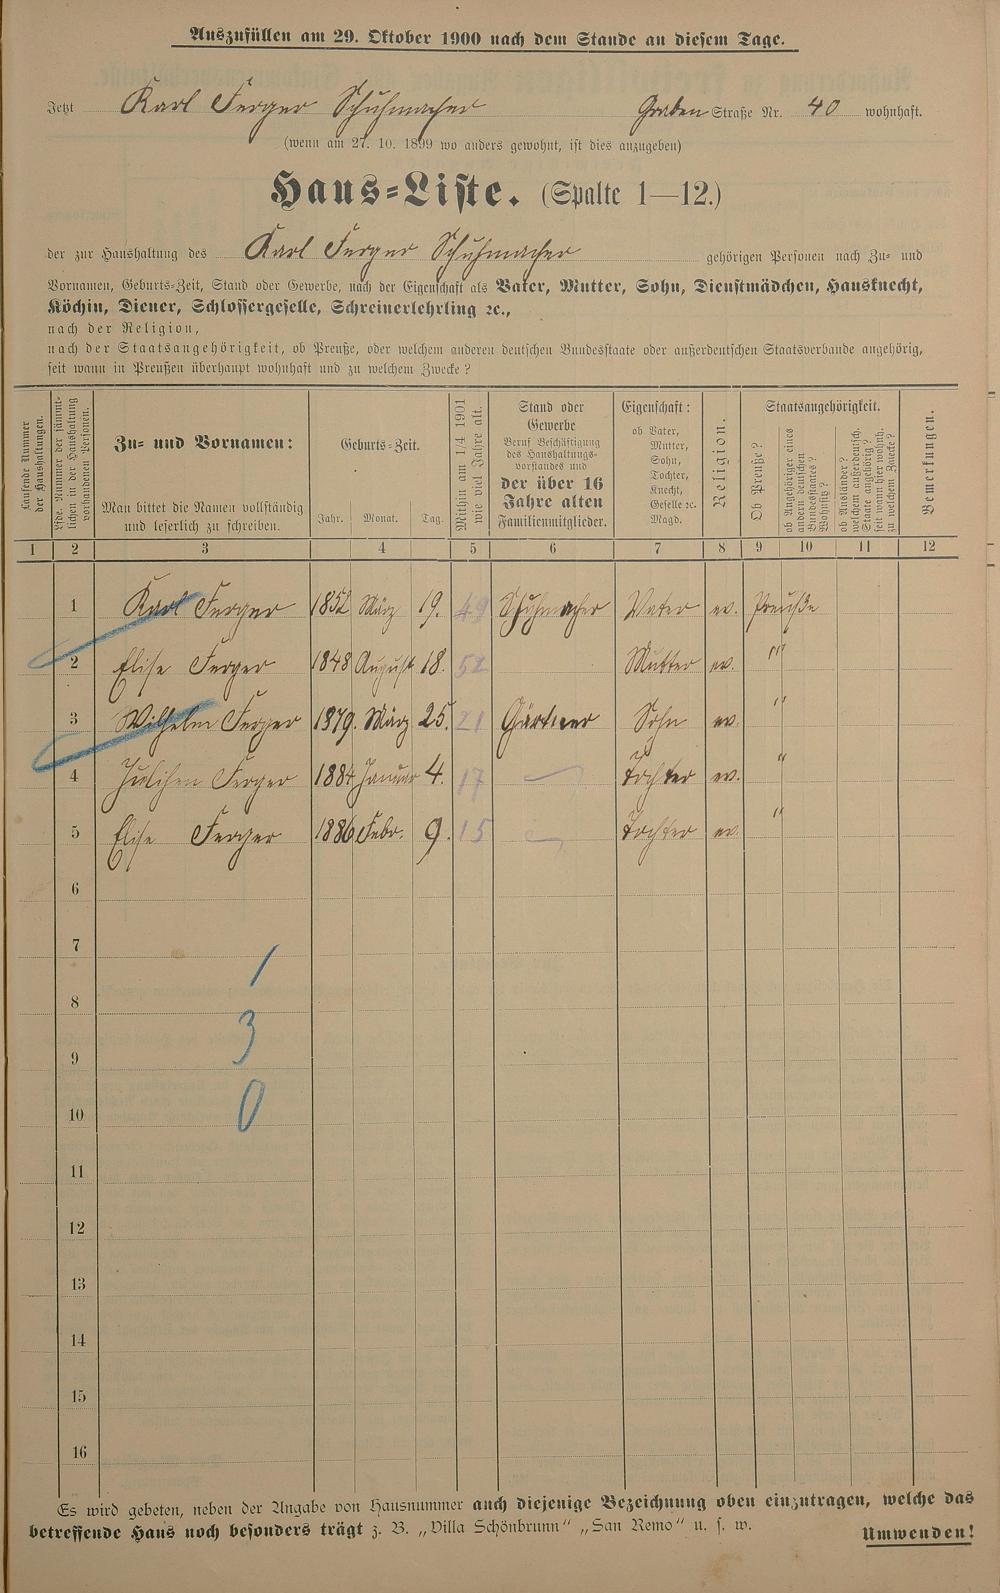 Auszufüllen am 29. Oktober 1900 nach dem Stande an diesem Tage.
Jetzt Karl Ferger Schuhmacher Graben Straße Nr. 40 wohnhaft.
(wenn am 27. 10. 1899 wo anders gewohnt, ist dies anzugeben)
Haus-Liste. (Spalte 1—12.)
der zur Haushaltung des Karl Ferger Schuhmacher gehörigen Personen nach Zu- und
Vornamen, Geburts-Zeit, Stand oder Gewerbe, nach der Eigenschaft als Vater, Mutter, Sohn, Dienstmädchen, Hausknecht,
Köchin, Diener, Schlossergeselle, Schreinerlehrling ꝛc.,
nach der Religion,
nach der Staatsangehörigkeit, ob Preuße, oder welchem anderen deutschen Bundesstaate oder außerdeutschen Staatsverbande angehörig,
seit wann in Preußen überhaupt wohnhaft und zu welchem Zwecke?
Laufende Nummer
der Haushaltungen.
Lfde. Nummer der sämmt-
lichen in der Haushaltung
vorhandenen Personen.
Zu- und Vornamen:
Man bittet die Namen vollständig
und leserlich zu schreiben.
Geburts-Zeit.
Jahr. Monat. Tag.
Mithin am 1/4 1901
wie viel Jahre alt.
Stand oder
Gewerbe
Beruf Beschäftigung
des Haushaltungs-
vorstandes und
der über 16
Jahre alten
Familienmitglieder.
Eigenschaft:
ob Vater,
Mutter,
Sohn,
Tochter,
Knecht,
Geselle ꝛc.
Magd.
Religion.
Staatsangehörigkeit.
Ob Preuße?
ob Angehöriger eines
andern deutschen
Bundesstaates?
Wohnsitz?
ob Ausländer?
welchem außerdeutsch.
Staate angehörig?
seit wann hier wohnh.
zu welchem Zwecke?
Bemerkungen.
1 2 3 4 5 6 7 8 9 10 11 12
1 Karl Ferger 1852 März 19. 49 Schuhmacher Vater ev. Preuße
2 Elise Ferger 1848 August 18. 52 Mutter ev. "
3 Wilhelm Ferger 1879. März 25. 21 Gärtner Sohn ev. "
4 Julchen Ferger 1884 Januar 4. 17 Tochter ev. "
5 Elise Ferger 1886 Febr. 9. 15 Tochter ev. "
6
7
1
8
3
9
0
10
11
12
13
14
15
16
Es wird gebeten, neben der Angabe von Hausnummer auch diejenige Bezeichnung oben einzutragen, welche das
betreffende Haus noch besonders trägt z. B. „Villa Schönbrunn“ „San Remo“ u. s. w.
Umwenden!